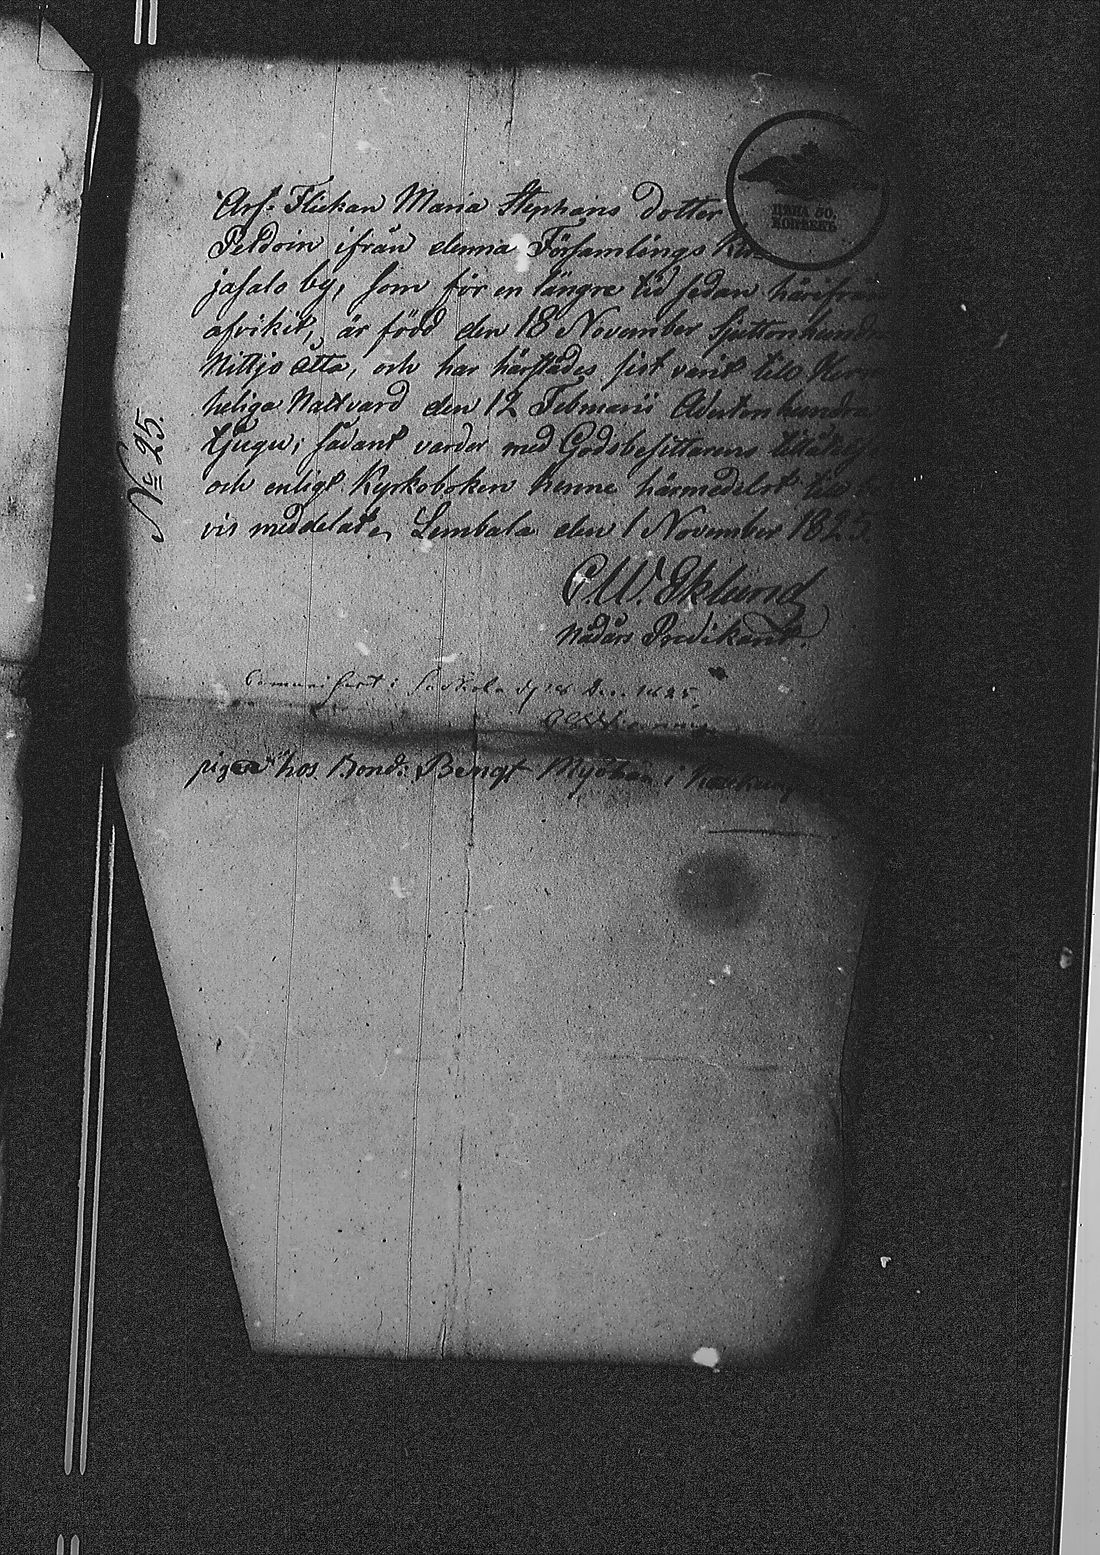 ЦѢНА 50,
КОПѢЕКЪ
Arf: Flickan Maria Stephans dotter
Peldoin ifrån denna Församlings
jasalo by, som för en längre tid sedan härifrån
afvikit, är född den 18 November sjuttonhundra
Nittio åtta, och har härstädes sist varit till
heliga Nattvard den 12 Februarii Adertonhundra
tjugu; sådant varder med Godsbesittarens
och enligt Kyrkoboken henne härmedelst till
vis meddelat, Lembala den 1 November 1825.
C. W. Eklund
Nådårs Predikant.
No 25.
Comunicerat i 18 Dec. 1825
piga hos Bond: Bengt